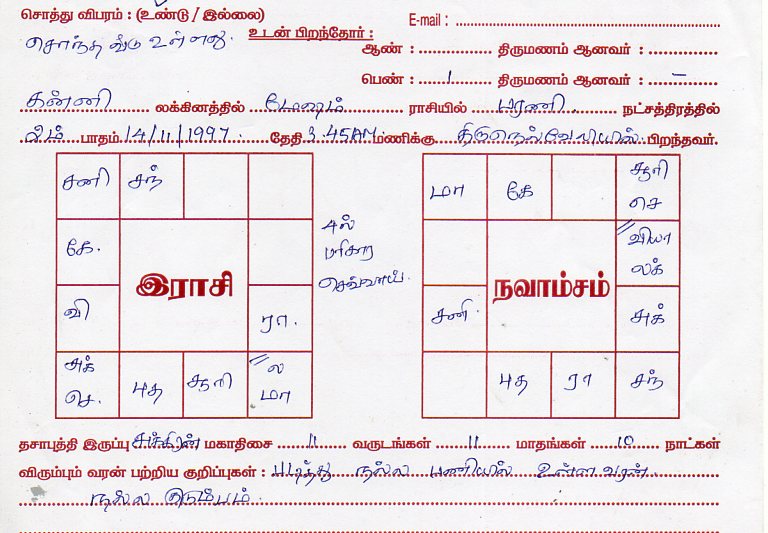 சொத்து விபரம் : (உண்டு / இல்லை)
E-mail :
சொந்த வீடு உள்ளது.
உடன் பிறந்தோர் :
ஆண் : திருமணம் ஆனவர் :
பெண் : 1 திருமணம் ஆனவர் : –
கன்னி லக்கினத்தில் மேஷம் ராசியில் பரணி நட்சத்திரத்தில்
2ம் பாதம் 14/11/1997 தேதி 3.45AM மணிக்கு திருநெல்வேலியில் பிறந்தவர்.
சனி சந்
கே.
இராசி
வி
ரா.
சுக்
செ. புத சூரி ல
மா
4ல்
பரிகார
செவ்வாய்.
மா கே சூரி
செ
வியா
லக்
நவாம்சம்
சனி சுக்
புத ரா சந்
தசாபுத்தி இருப்பு சுக்கிரன் மகாதிசை 11 வருடங்கள் 11 மாதங்கள் 10 நாட்கள்
விரும்பும் வரன் பற்றிய குறிப்புகள் : படித்து நல்ல பணியில் உள்ள வரன்.
நல்ல குடும்பம்.